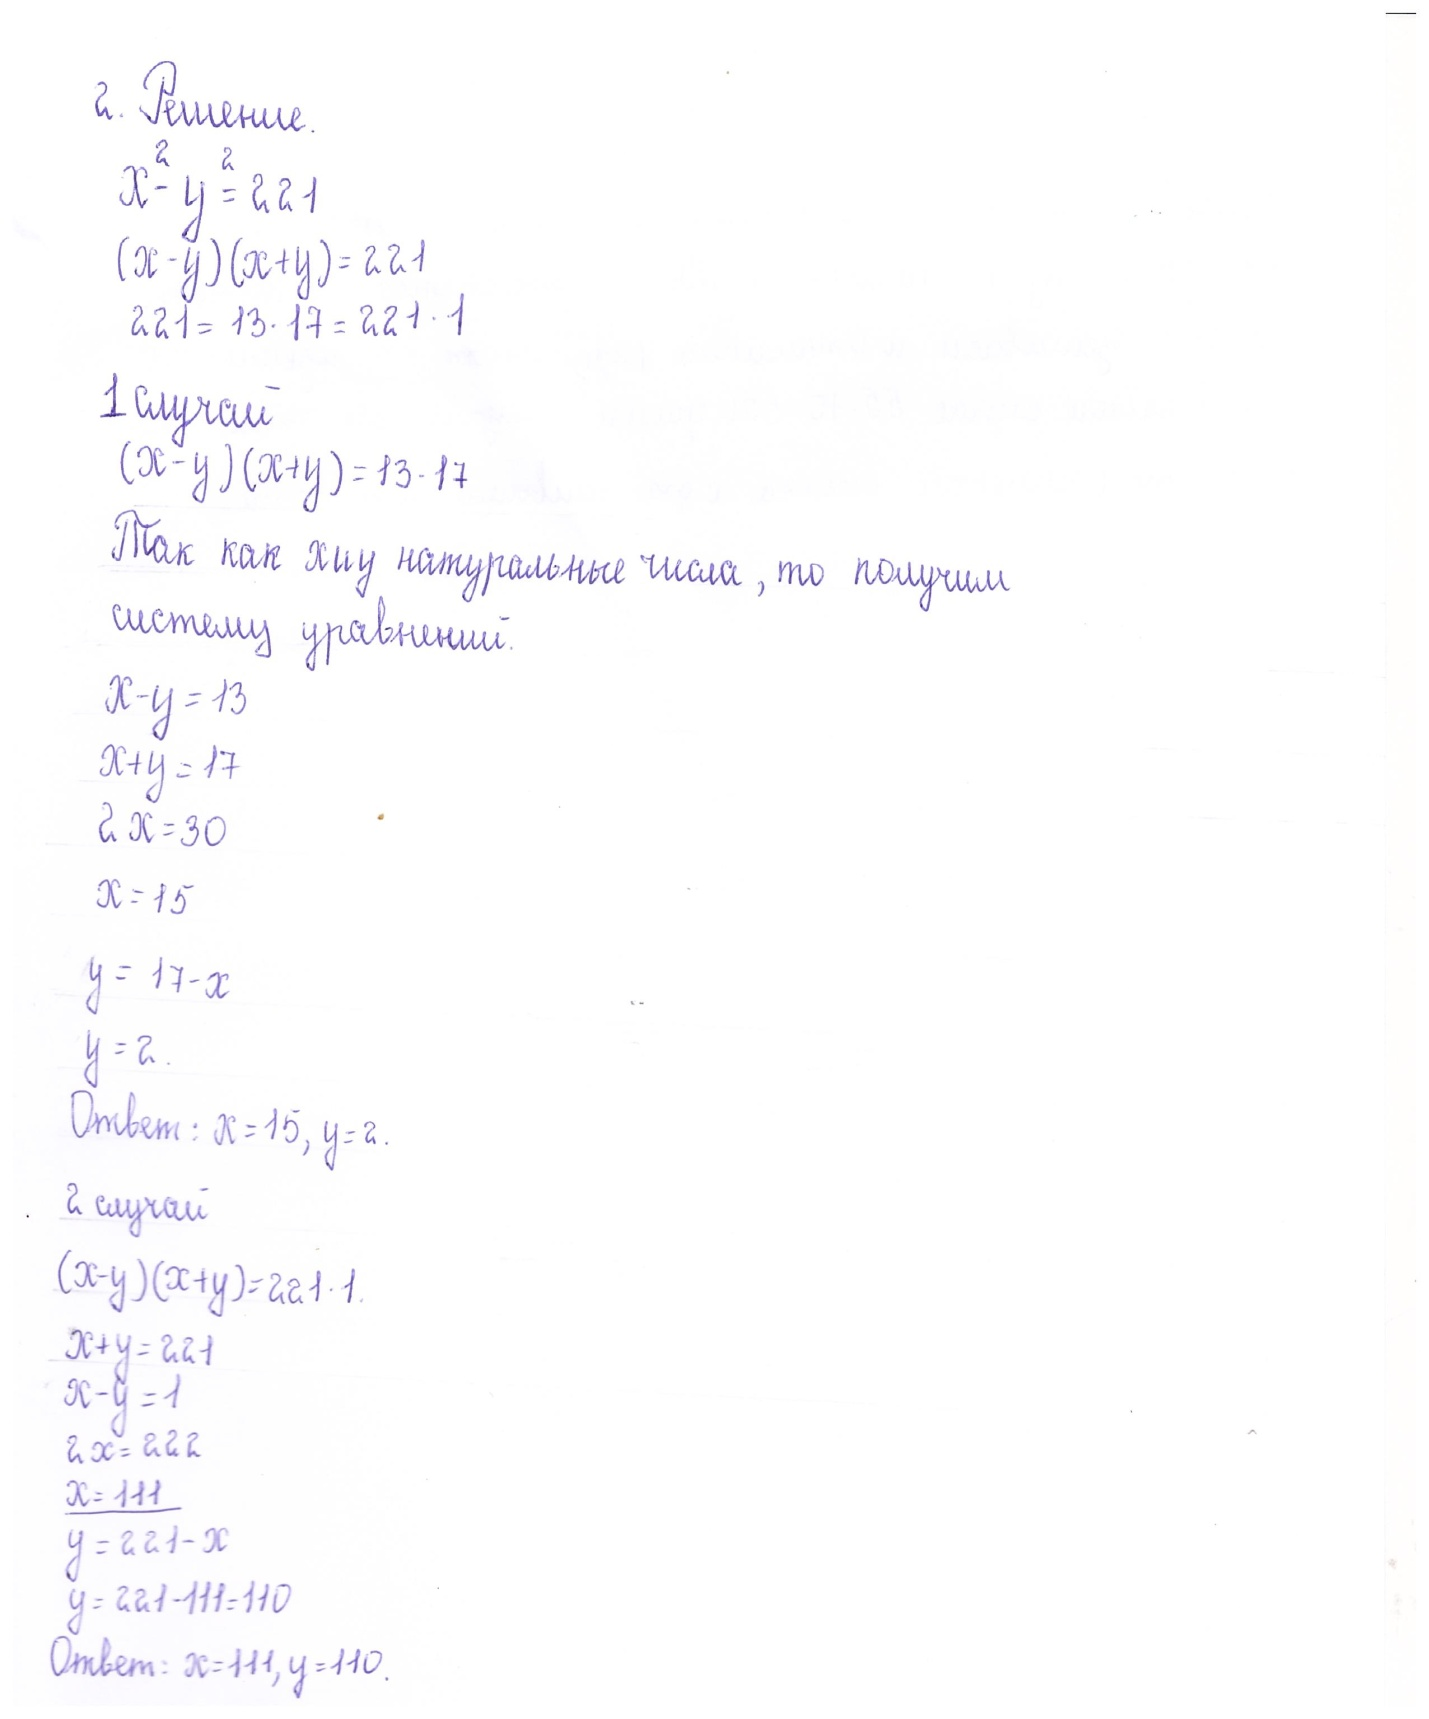 2. Решение.
x² - y² = 221
(x - y)(x + y) = 221
221 = 13 · 17 = 221 · 1
1 случай
(x - y)(x + y) = 13 · 17
Так как x и y натуральные числа, то получим
систему уравнений.
x - y = 13
x + y = 17
2x = 30
x = 15
y = 17 - x
y = 2.
Ответ: x = 15, y = 2.
2 случай
(x - y)(x + y) = 221 · 1.
x + y = 221
x - y = 1
2x = 222
x = 111
y = 221 - x
y = 221 - 111 = 110
Ответ: x = 111, y = 110.